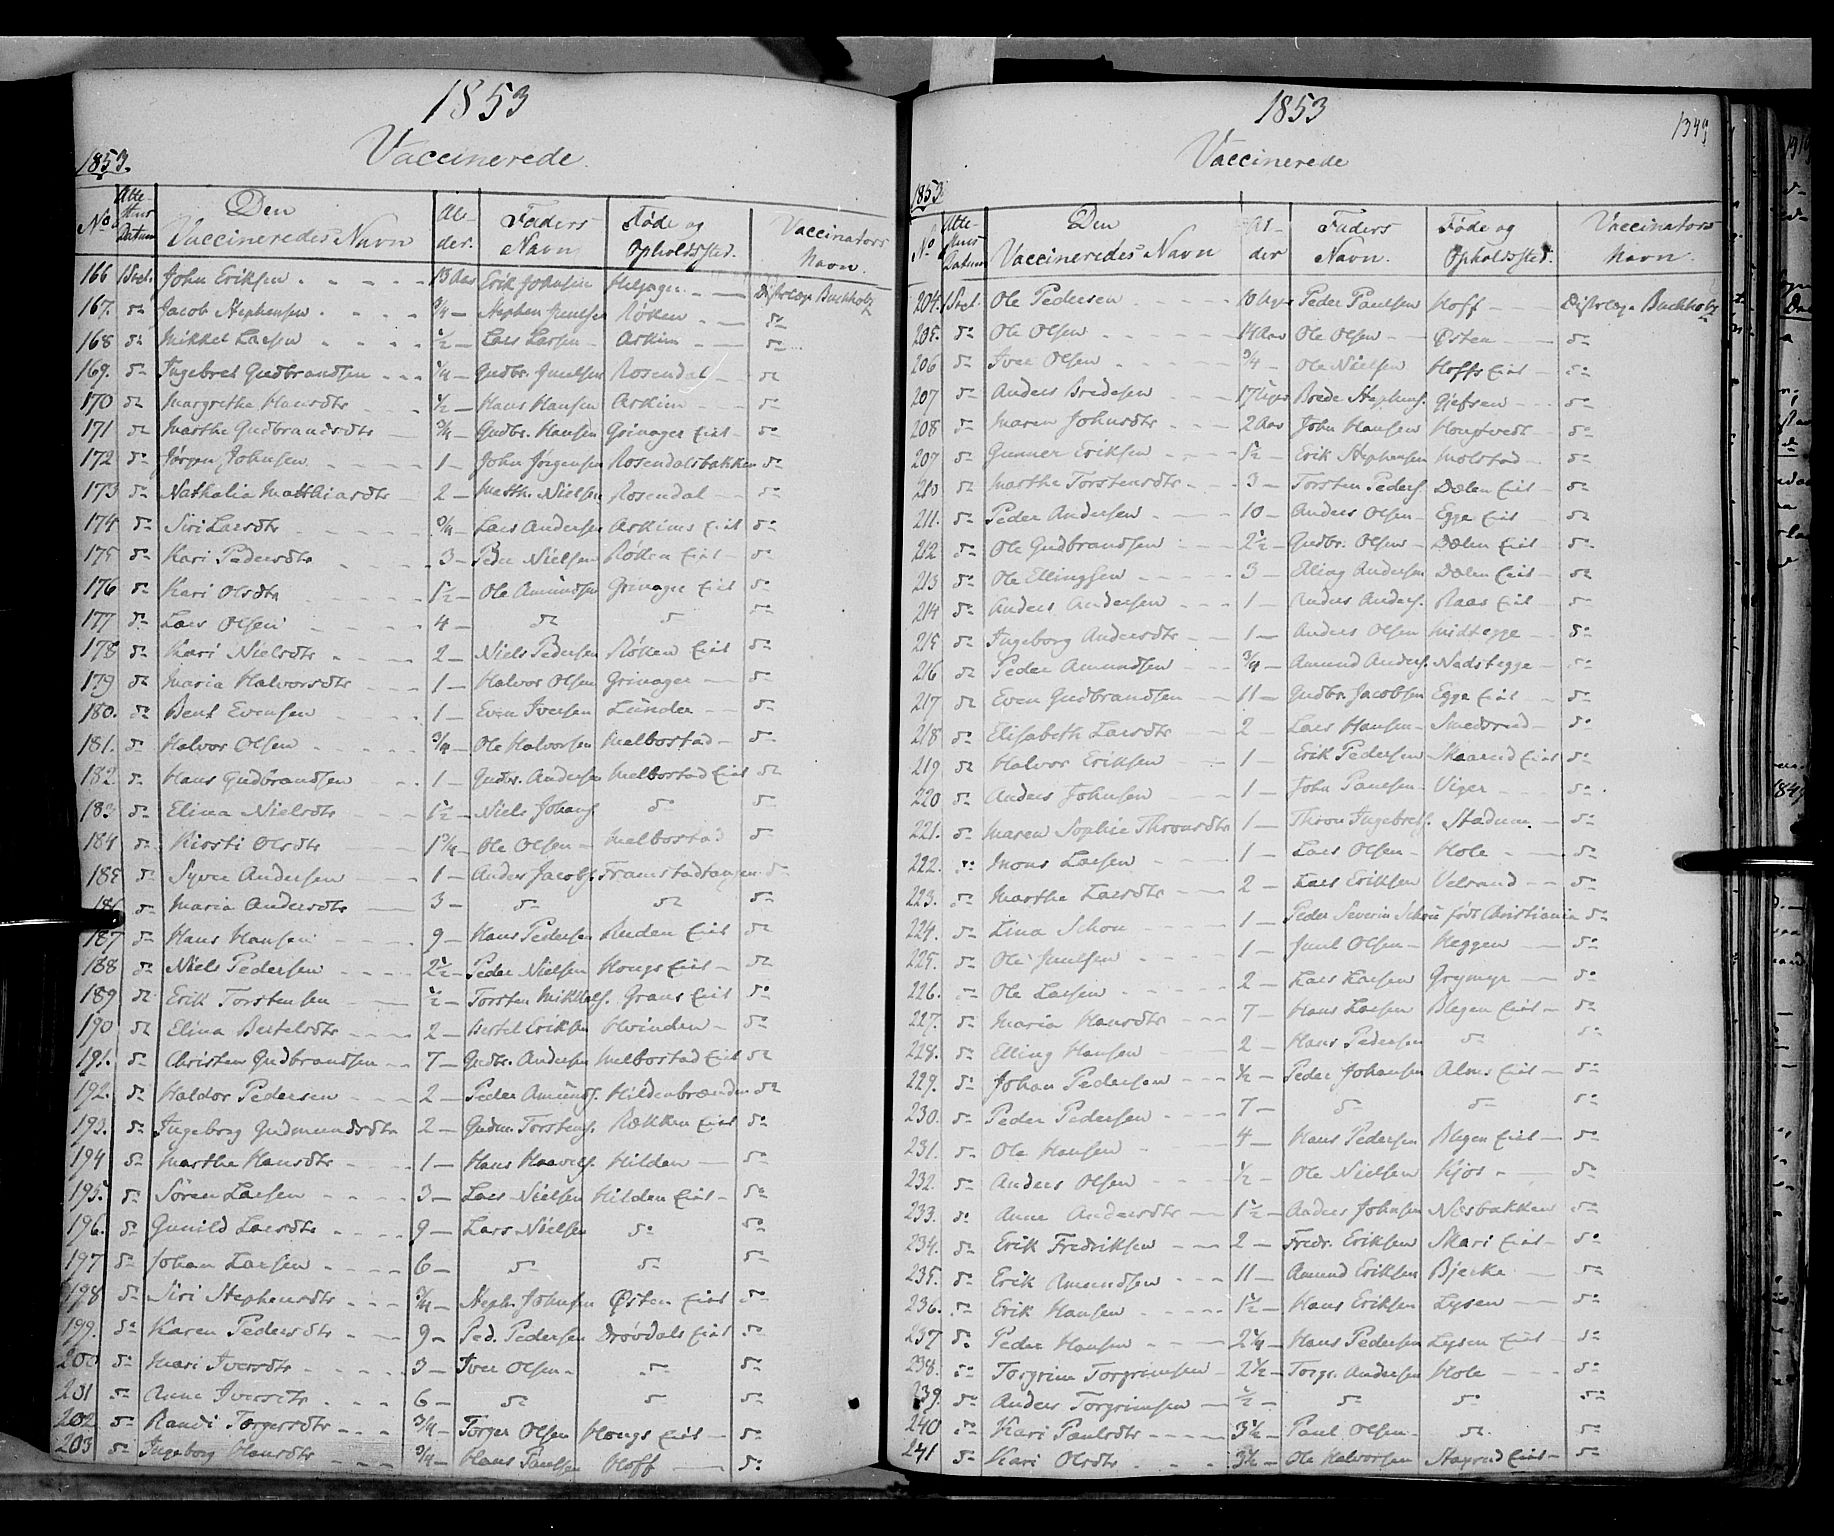 1853
Vaccinerede.
1853.
No Attestens Datum Den Vaccineredes Navn Alder. Faders Navn Føde og Opholdssted. Vaccinators Navn.
166 John Eriksen 13 Aar Erik Johnsen Helgager Distrlæge Buchholz
167. do Jacob Stephensen 3/4 Stephen Juulsen Røken do
168 do Mikkel Larsen 1/2 Lars Larsen Askim do
169. do Ingebret Gudbrandsen 1/4 Gudbr. Juulsen Rosendal do
170 do Margrethe Hansdtr 1/2 Hans Hansen Askim do
171 do Marthe Gudbrandsdtr 3/4 Gudbr. Hansen Grinager Eiet do
172 do Jørgen Johnsen 1 John Jørgensen Rosendalsbakken do
173 do Nathalia Matthiasdtr 2 Matth. Nielsen Rosendal do
174 do Siri Larsdtr 3/4 Lars Andersen Askims Eiet do
175 do Kari Pedersdtr 3 Peder Nielsen Røken Eiet do
176 do Kari Olsdtr 1 1/2 Ole Amundsen Grinager Eiet do
177 do Lars Olsen 4 do do do
178 do Kari Nielsdtr 2 Niels Pedersen Røken Eiet do
179 do Maria Halvorsdtr 1 Halvor Olsen Grinager do
180. do Bent Evensen 1 Even Iversen Lunder do
181. do Halvor Olsen 3/4 Ole Halvorsen Melbostad do
182 do Hans Gudbrandsen 1 Gudbr. Andersen Melbostad Eiet do
183 do Elina Nielsdtr 1 1/2 Niels Johans. do do
184 do Kirsti Olsdtr 1 3/4 Ole Olsen Melbostad do
185 do Syver Andersen 1 Anders Jacobs. Framstadtangen do
186 do Maria Andersdtr 3 do do do
187 do Hans Hansen 9 Hans Pedersen Ruden Eiet do
188 do Niels Pedersen 2 1/2 Peder Nielsen Hougs Eiet do
189 do Erik Torstensen 1/2 Torsten Mikkels. Grans Eiet do
190 do Elina Bertelsdtr 2 Bertel Eriksen Hvinden do
191. do Christen Gudbrandsen 7 Gudbr. Andersen Melbostad Eiet do
192. do Haldor Pedersen 2 Peder Amunds. Hildenbrænden do
193. do Ingeborg Gudmundsdtr 2 Gudm. Torstens. Rækken Eiet do
194 do Marthe Hansdtr 1 Hans Haavels. Hilden do
195. do Sören Larsen 3 Lars Nielsen Hilden Eiet do
196. do Gunild Larsdtr 9 Lars Nielsen do do
197 do Johan Larsen 6 do do do
198 do Siri Stephensdtr 3/4 Steph. Johnsen Østen Eiet do
199. do Karen Pedersdtr 9 Ped. Pedersen Drövdals Eiet do
200 do Mari Iversdtr 3 Iver Olsen do do
201 do Anne Iversdtr 6 do do do
202 do Randi Torgersdtr 3/4 Torger Olsen Hougs Eiet do
203 do Ingeborg Hansdtr 3/4 Hans Paulsen Hoff do
1853
Vaccinerede
1853
No Attestens Datum Den Vaccineredes Navn Alder Faders Navn. Føde og Opholdssted. Vaccinators Navn.
204. Ole Pedersen 10 Uger Peder Paulsen Hoff Distrlæge Buchholz
205. do Ole Olsen 14 Aar Ole Olsen Østen do
206 do Iver Olsen 3/4 Ole Nielsen Hoffs Eiet do
207 do Anders Bredesen 17 Uger Brede Stephens. Gjefsen do
208 do Maren Johnsdtr 2 Aar John Hansen Hougtvedt do
207 do Gunner Eriksen 5 1/2 Erik Stephensen Molstad do
210 do Marthe Torstensdtr 3 Torsten Peders. Dælen Eiet do
211. do Peder Andersen 10 Anders Olsen Egge Eiet do
212 do Ole Gudbrandsen 2 1/2 Gudbr. Olsen Dælen Eiet do
213 do Ole Ellingsen 3 Elling Andersen Dælen Eiet do
214 do Anders Andersen 1 Anders Anders. Raas Eiet do
215 do Ingeborg Andersdtr 1 Anders Olsen Midtegge do
216 do Peder Amundsen 3/4 Amund Anders. Nedstegge do
217 do Even Gudbrandsen 11 Gudbr. Jacobsen Egge Eiet do
218 do Elisabeth Larsdtr 2 Lars Hansen Smedsrud do
219 do Halvor Eriksen 1 Erik Pedersen Skaarud Eiet do
220 do Anders Johnsen 1 John Paulsen Viger do
221. do Maren Sophie Thronsdtr 1 Thron Ingebrets. Stadum do
222. do Mons Larsen 1 Lars Olsen Hole do
223. do Marthe Larsdtr 2 Lars Eriksen Velsand do
224. do Lina Schou 1 Peder Severin Schou födt Christiania do
225. do Ole Juulsen 1 Juul Olsen Heggen do
226. do Ole Larsen 2 Lars Larsen Grymyr do
227. do Maria Hansdtr 7 Hans Larsen Blegen Eiet do
228. do Elling Hansen 2 Hans Pedersen do do
229. do Johan Pedersen 1/2 Peder Johansen Alms Eiet do
230. do Peder Pedersen 7 do do do
231. do Ole Hansen 4 Hans Pedersen Blegen Eiet do
232. do Anders Olsen 1/2 Ole Nielsen Kjos do
233. do Anne Andersdtr 1 1/2 Anders Johnsen Næsbakken do
234. do Erik Fredriksen 2 Fredr. Eriksen Skari Eiet do
235. do Erik Amundsen 11 Amund Eriksen Bjerke do
236. do Erik Hansen 1 1/2 Hans Eriksen Lysen do
237 do Peder Hansen 2 1/4 Hans Pedersen Lysen Eiet do
238. do Torgrim Torgrimsen 2 1/2 Torgr. Andersen Hole do
239. do Anders Torgrimsen 1/2 do do do
240 do Kari Paulsdtr 3 1/2 Paul Olsen do do
241 do Kari Olsdtr 3 1/2 Ole Halvorsen Staxrud Eiet do